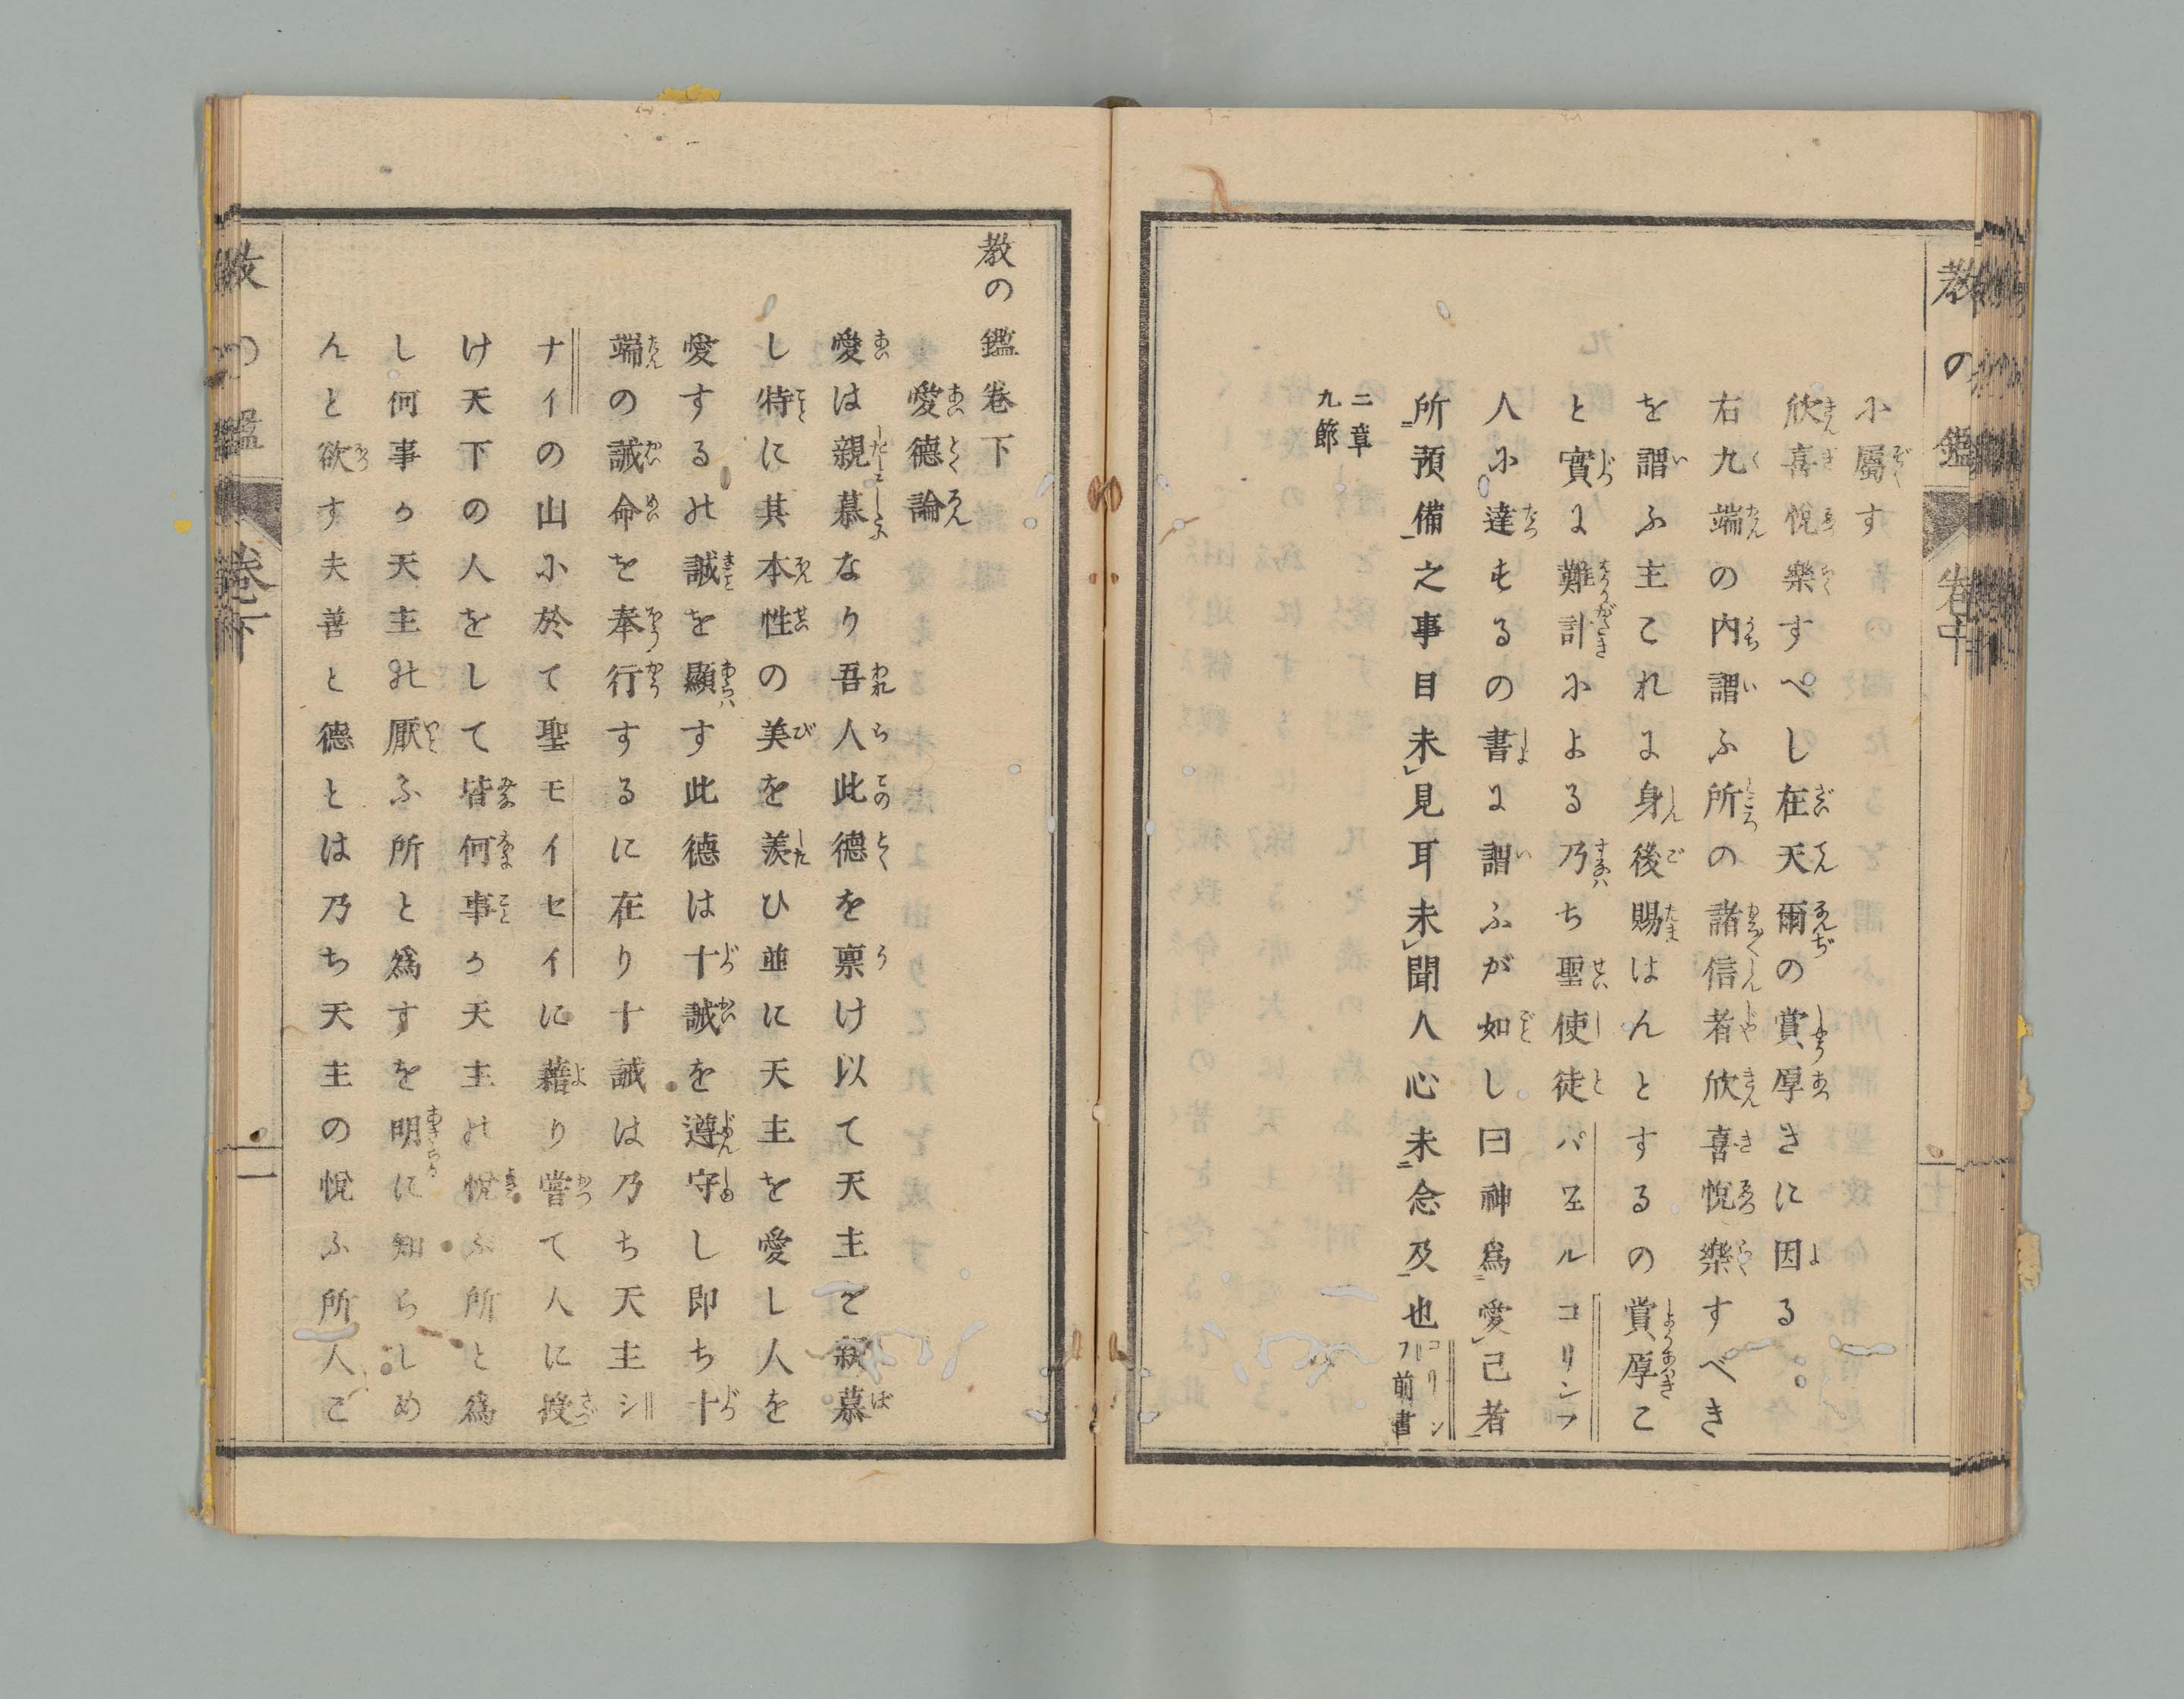 教の鑑 卷中
小屬す
欣喜悅樂すべし在天爾の賞厚きに因る
右九端の内謂ふ所の諸信者欣喜悅樂すべき
を謂ふ主これよ身後賜はんとするの賞厚こ
と實よ難計小よる乃ち聖使徒パエルコリンフ
人小達せるの書よ謂ふが如し曰神爲愛己者
所預備之事目未見耳未聞人心未念及也コリンフ前書
二章九節
教の鑑卷下
愛德論
愛は親慕なり吾人此德を稟け以て天主を親慕
し特に其本性の美を羨ひ並に天主を愛し人を
愛するの誠を顯す此德は十誡を遵守し即ち十
端の誡命を奉行するに在り十誡は乃ち天主シ
ナイの山小於て聖モイセイに藉り嘗て人に授
け天下の人をして皆何事か天主の悅ふ所と爲
し何事か天主の厭ふ所と爲すを明に知らしめ
んと欲す夫善と德とは乃ち天主の悅ふ所人こ
教の鑑 卷下 一